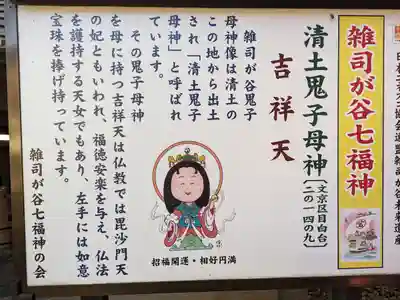 雑司が谷七福神
清土鬼子母神(文京区目白台二の一四の九)
吉祥天
雑司が谷鬼子
母神像は清土の
この地から出土
され「清土鬼子
母神」と呼ばれ
ています。
その鬼子母神
を母に持つ吉祥天は仏教では毘沙門天
の妃ともいわれ、福徳安楽を与え、仏法
を護持する天女でもあり、左手には如意
宝珠を捧げ持っています。
雑司が谷七福神の会
招福開運・相好円満